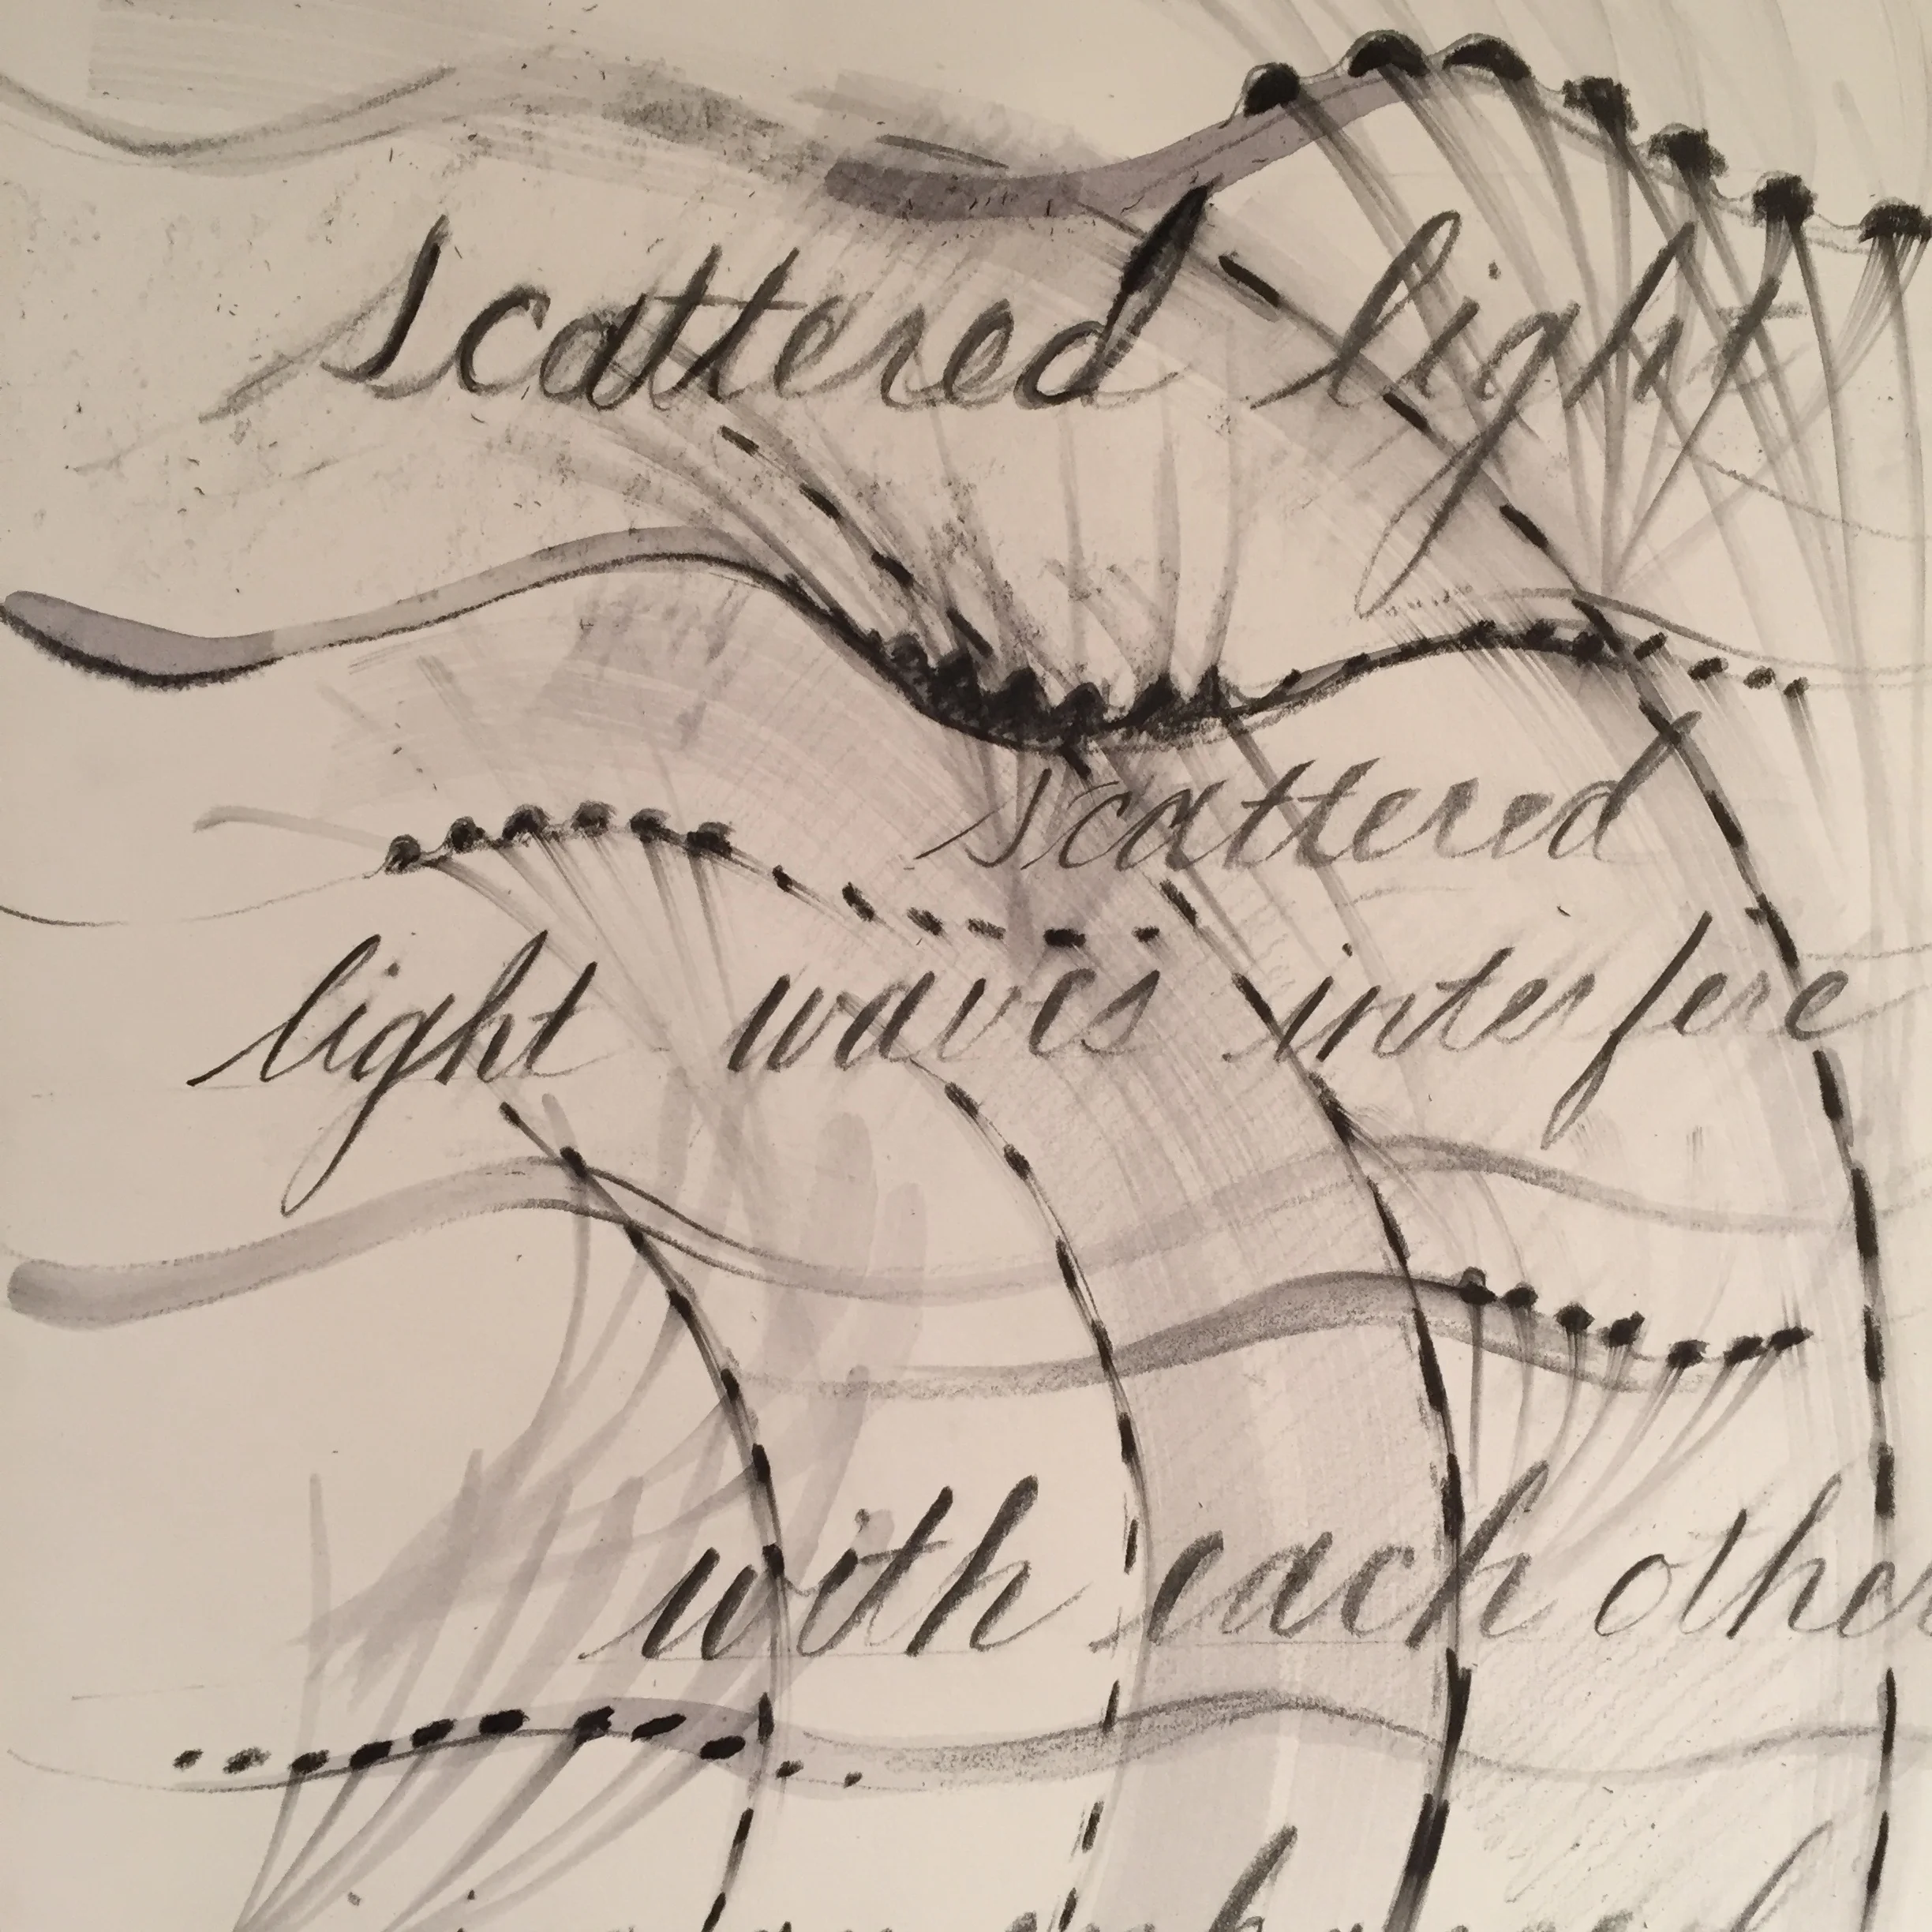 scattered light
scattered
light waves interfere
with each other